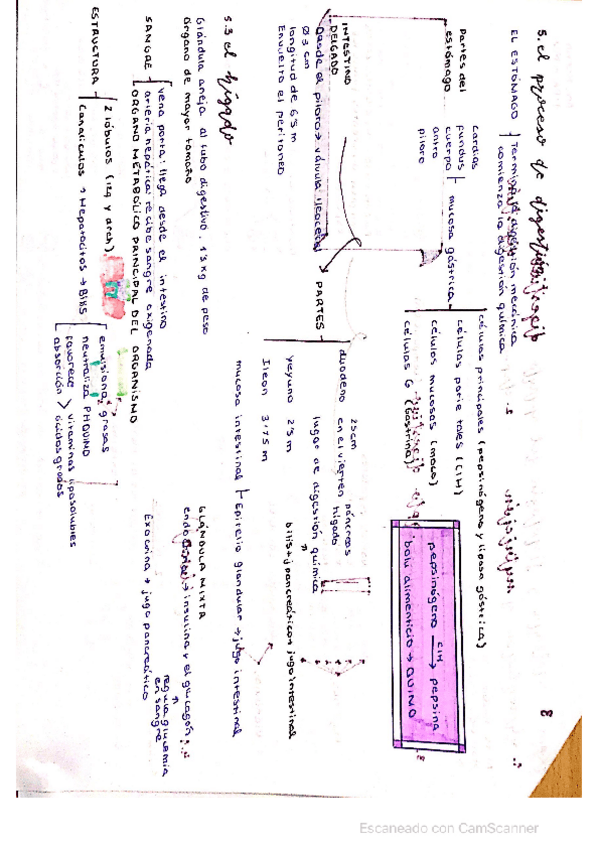 8
5. el proceso de digestión
EL ESTÓMAGO termina la digestión mecánica
comienza la digestión química
Partes del
estómago
cardias
fundus
cuerpo
antro
píloro
mucosa gástrica
células principales (pepsinógeno y lipasa gástrica)
células parietales (ClH)
células mucosas (moco)
células G (Gastrina)
pepsinógeno ClH → pepsina
bolo alimenticio → QUIMO
INTESTINO
DELGADO
Desde el píloro → válvula ileocecal
Ø 3 cm
longitud de 6'5 m
Envuelto el peritoneo
PARTES
duodeno
25cm
en el vierten páncreas
hígado
lugar de digestión química
bilis + j pancreático + jugo intestinal
yeyuno 2'5 m
Ileon 3'75 m
mucosa intestinal Epitelio glandular → jugo intestinal
5.3 el hígado
Glándula aneja al tubo digestivo. 1'5 kg de peso
órgano de mayor tamaño
SANGRE
vena porta: llega desde el intestino
arteria hepática: recibe sangre oxigenada
ORGANO METABÓLICO PRINCIPAL DEL ORGANISMO
ESTRUCTURA
2 lóbulos (izq y drch).
canalículos → Hepatocitos → BILIS
emulsiona grasas
neutraliza PH QUIMO
favorece
absorción > vitaminas liposolubles
ácidos grasos
GLÁNDULA MIXTA
endocrina → insulina y el glucagón
regula glucemia
en sangre
Exocrina → jugo pancreático
Escaneado con CamScanner